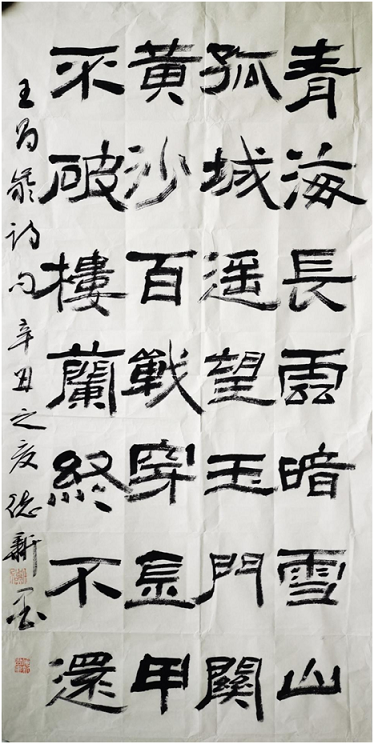 青海長雲暗雪山
孤城遥望玉門關
黄沙百戰穿金甲
不破樓蘭終不還
王昌龄诗句辛丑之夏德新